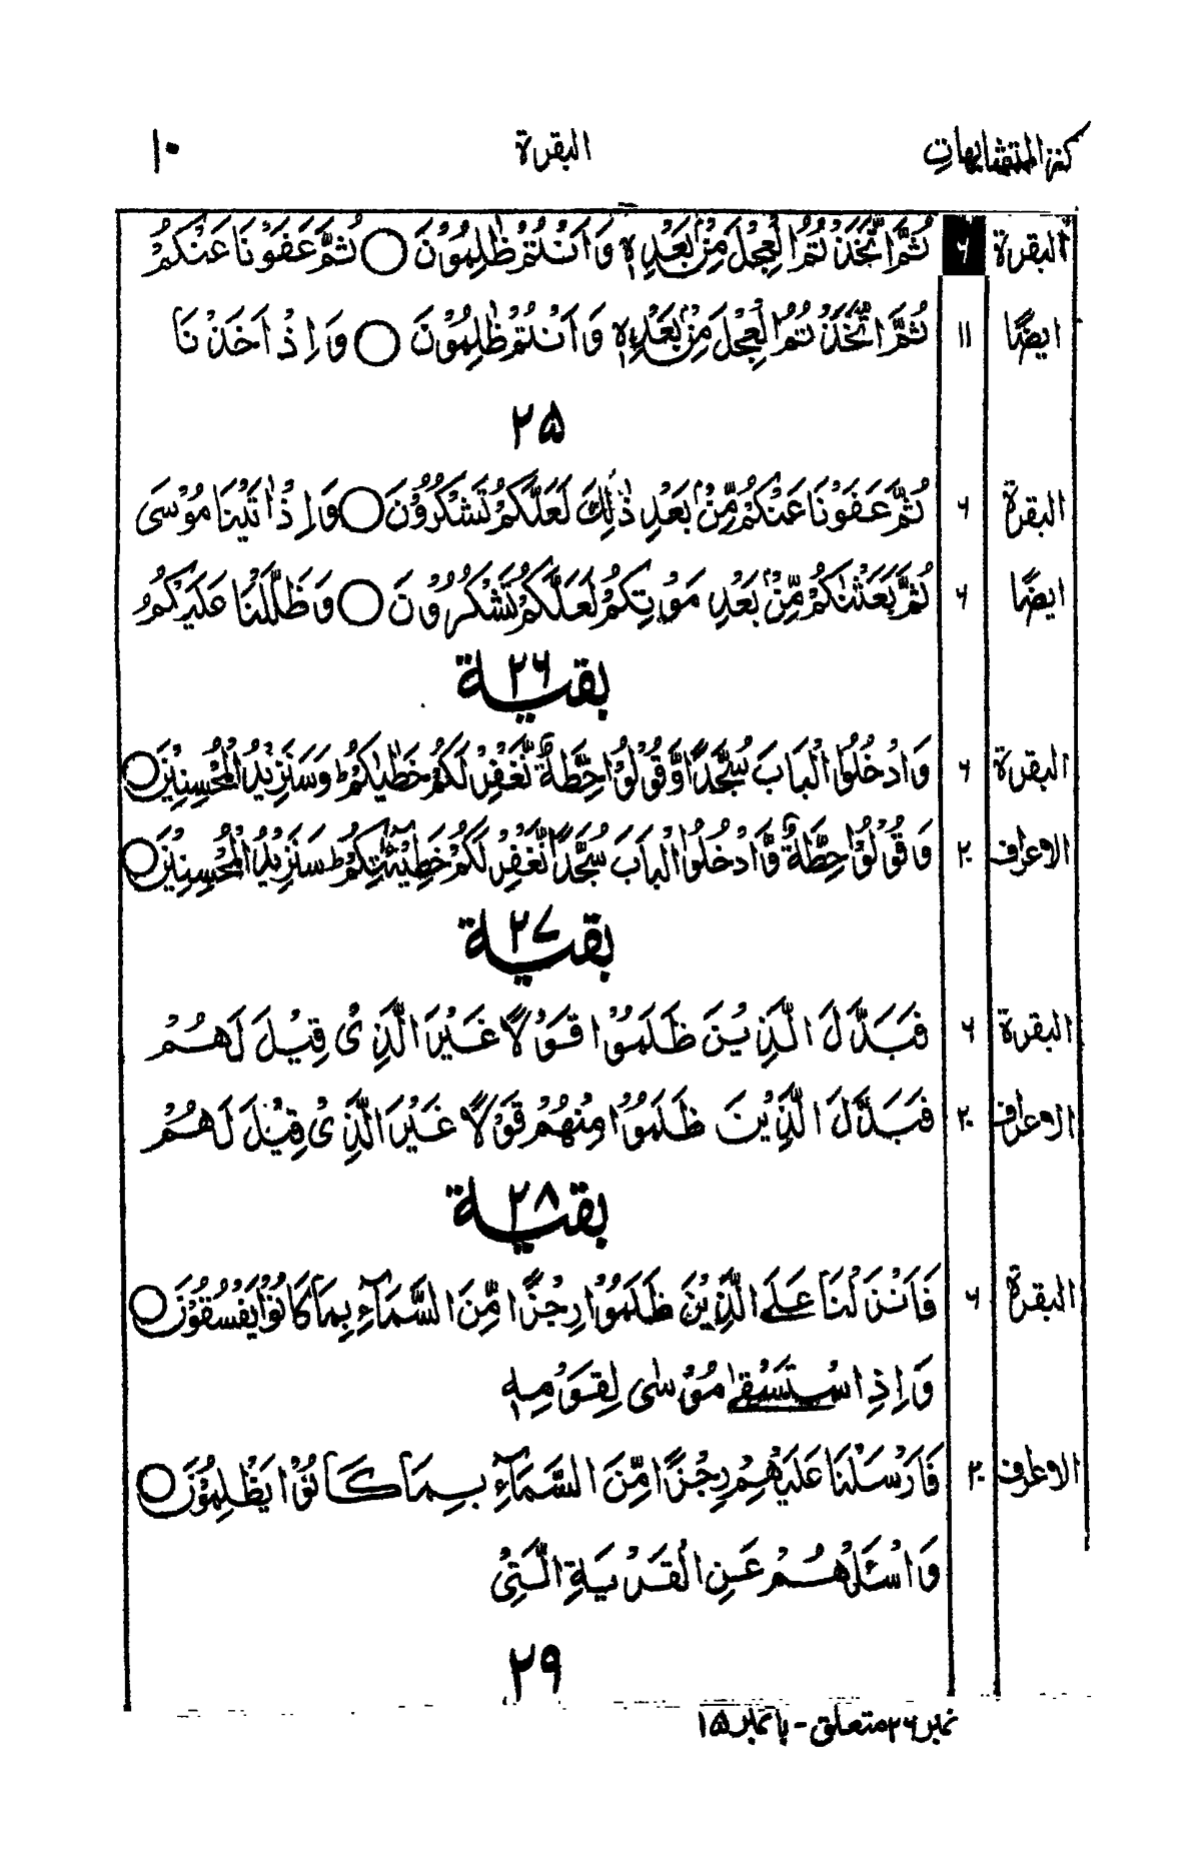 كنز المتشابهات البقرة ١٠
البقرة ٦ ثُمَّ اتَّخَذْتُمُ الْعِجْلَ مِنْۢ بَعْدِهٖ وَاَنْتُمْ ظٰلِمُوْنَ ○ ثُمَّ عَفَوْنَا عَنْكُمْ
ايضًا ١١ ثُمَّ اتَّخَذْتُمُ الْعِجْلَ مِنْۢ بَعْدِهٖ وَاَنْتُمْ ظٰلِمُوْنَ ○ وَاِذْ اَخَذْنَا
٢٥
البقرة ٦ ثُمَّ عَفَوْنَا عَنْكُمْ مِّنْۢ بَعْدِ ذٰلِكَ لَعَلَّكُمْ تَشْكُرُوْنَ ○ وَاِذْ اٰتَيْنَا مُوْسَى
ايضًا ٦ ثُمَّ بَعَثْنٰكُمْ مِّنْۢ بَعْدِ مَوْتِكُمْ لَعَلَّكُمْ تَشْكُرُوْنَ ○ وَظَلَّلْنَا عَلَيْكُمُ
بقية ٢٦
البقرة ٦ وَادْخُلُوا الْبَابَ سُجَّدًا وَّقُوْلُوْا حِطَّةٌ نَّغْفِرْ لَكُمْ خَطٰيٰكُمْ ؕ وَسَنَزِيْدُ الْمُحْسِنِيْنَ ○
الاعراف ٢٠ وَقُوْلُوْا حِطَّةٌ وَّادْخُلُوا الْبَابَ سُجَّدًا نَّغْفِرْ لَكُمْ خَطِيْٓـٰٔتِكُمْ ؕ سَنَزِيْدُ الْمُحْسِنِيْنَ ○
بقية ٢٧
البقرة ٦ فَبَدَّلَ الَّذِيْنَ ظَلَمُوْا قَوْلًا غَيْرَ الَّذِيْ قِيْلَ لَهُمْ
الاعراف ٢٠ فَبَدَّلَ الَّذِيْنَ ظَلَمُوْا مِنْهُمْ قَوْلًا غَيْرَ الَّذِيْ قِيْلَ لَهُمْ
بقية ٢٨
البقرة ٦ فَاَنْزَلْنَا عَلَى الَّذِيْنَ ظَلَمُوْا رِجْزًا مِّنَ السَّمَآءِ بِمَا كَانُوْا يَفْسُقُوْنَ ○
وَاِذِ اسْتَسْقٰى مُوْسٰى لِقَوْمِهٖ
الاعراف ٢٠ فَاَرْسَلْنَا عَلَيْهِمْ رِجْزًا مِّنَ السَّمَآءِ بِمَا كَانُوْا يَظْلِمُوْنَ ○
وَاسْـَٔلْهُمْ عَنِ الْقَرْيَةِ الَّتِيْ
٢٩
نمبر ٢٦ متعلق - با نمبر ١٥